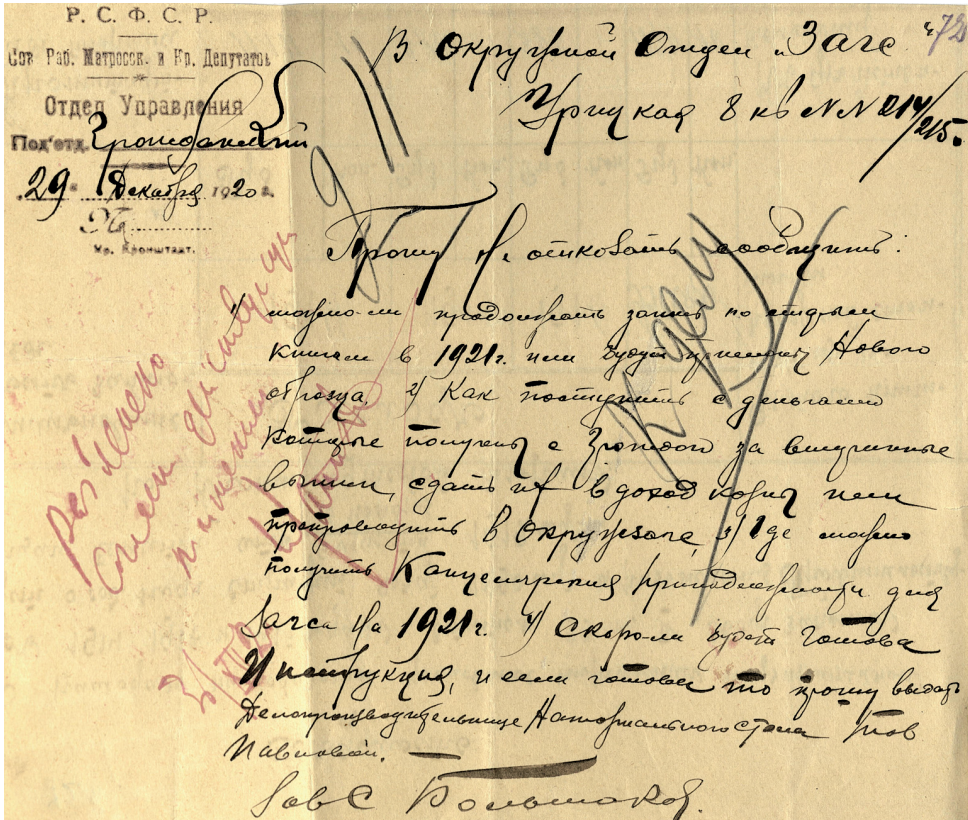 Р. С. Ф. С. Р.
Сов. Раб. Матросск. и Кр. Депутатов
Отдел Управления
Под'отд. Гражданский
"29" Декабря 1920 г.
№
Кр. Кронштадт.
72
В Окружной Отдел "Загс"
Урицкая 8 кв NN 214/215.
Прошу не отказать сообщить:
1) можно-ли продолжать запись по старым
книгам в 1921 г. или будут Нового
образца 2) Как поступить с деньгами
которые получены с граждан за
выписи, сдать их в доход казны или
препроводить в Окружзагс, 3) где можно
получить Канцелярския принадлежности для
Загса на 1921 г. 4) Скороли будет готова
Инструкция, и если готова то прошу выдать
Делопроизводительнице Натариального стола тов
Павловой.
Зав С Большаков.
К делу
Раз'яснено